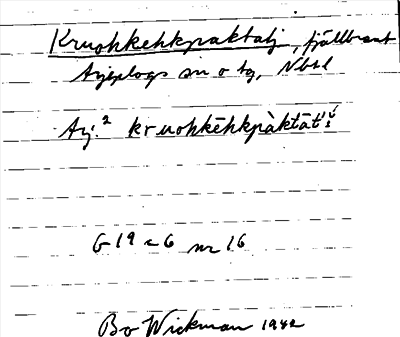 Kruohkehkpaktatj, fjällbrant
Arjeplogs sn o tg, Nbtl
Arj.² kruohkēhkpàktāt'ś
G 19 c 6 nr 16
Bo Wickman 1942